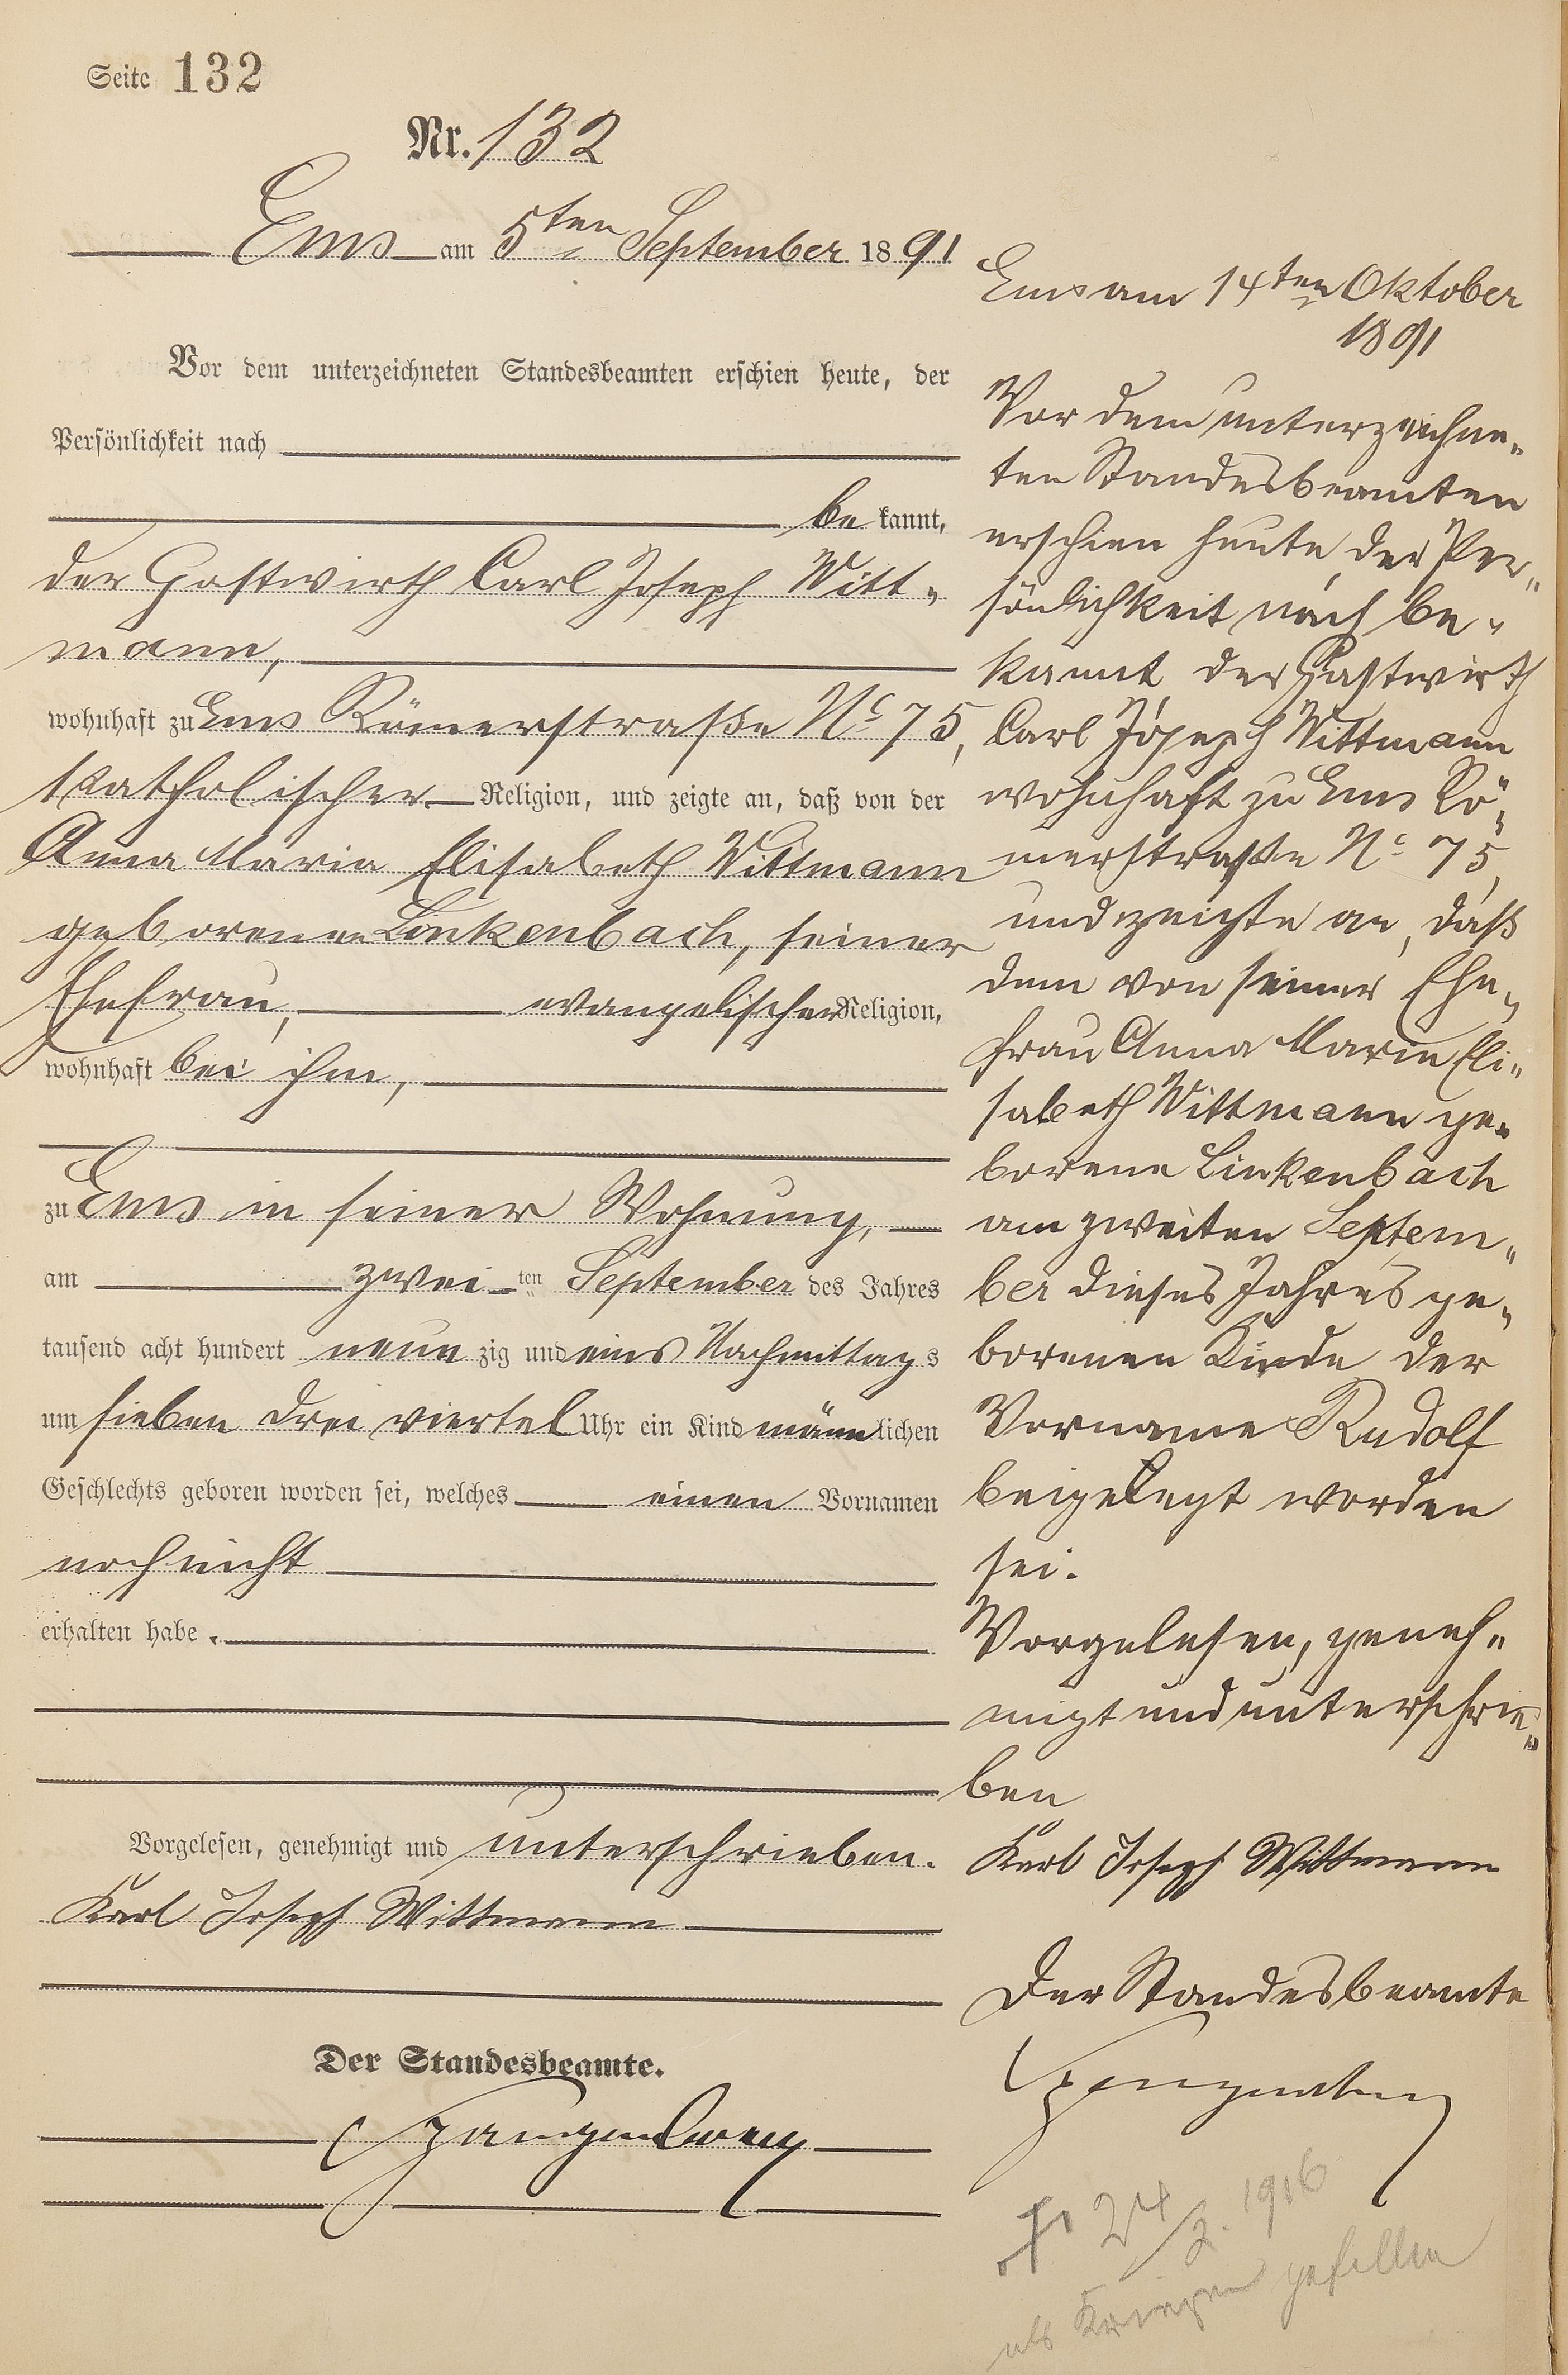 Seite 132
Nr. 132
Ems am 5ten September 1891
Vor dem unterzeichneten Standesbeamten erschien heute, der
Persönlichkeit nach
be kannt,
der Gastwirth Carl Joseph Witt„
mann,
wohnhaft zu Ems Römerstraße No 75,
katholischer Religion, und zeigte an, daß von der
Anna Maria Elisabeth Wittmann
geborenen Linkenbach, seiner
Ehefrau, evangelischer Religion,
wohnhaft bei ihm,
zu Ems in seiner Wohnung,
am zwei ten September des Jahres
tausend acht hundert neun zig und eins Nachmittags
um sieben drei viertel Uhr ein Kind männlichen
Geschlechts geboren worden sei, welches einen Vornamen
noch nicht
erhalten habe.
Vorgelesen, genehmigt und unterschrieben.
Karl Joseph Wittmann
Der Standesbeamte.
Ems am 14ten Oktober
1891
Vor dem unterzeichne„
ten Standesbeamten
erschien heute, der Per„
sönlichkeit nach be„
kannt, der Gastwirth
Carl Joseph Wittmann
wohnhaft zu Ems Rö„
merstraße No 75,
und zeigte an, daß
dem von seiner Ehe„
frau Anna Maria Eli„
sabeth Wittmann ge„
borene Linkenbach
am zweiten Septem„
ber dieses Jahres ge„
borenen Kinde der
Vorname Rudolf
beigelegt worden
sei.
Vorgelesen, geneh„
migt und unterschrie„
ben
Karl Joseph Wittmann
Der Standesbeamte
24/2. 1916
als Krieger gefallen